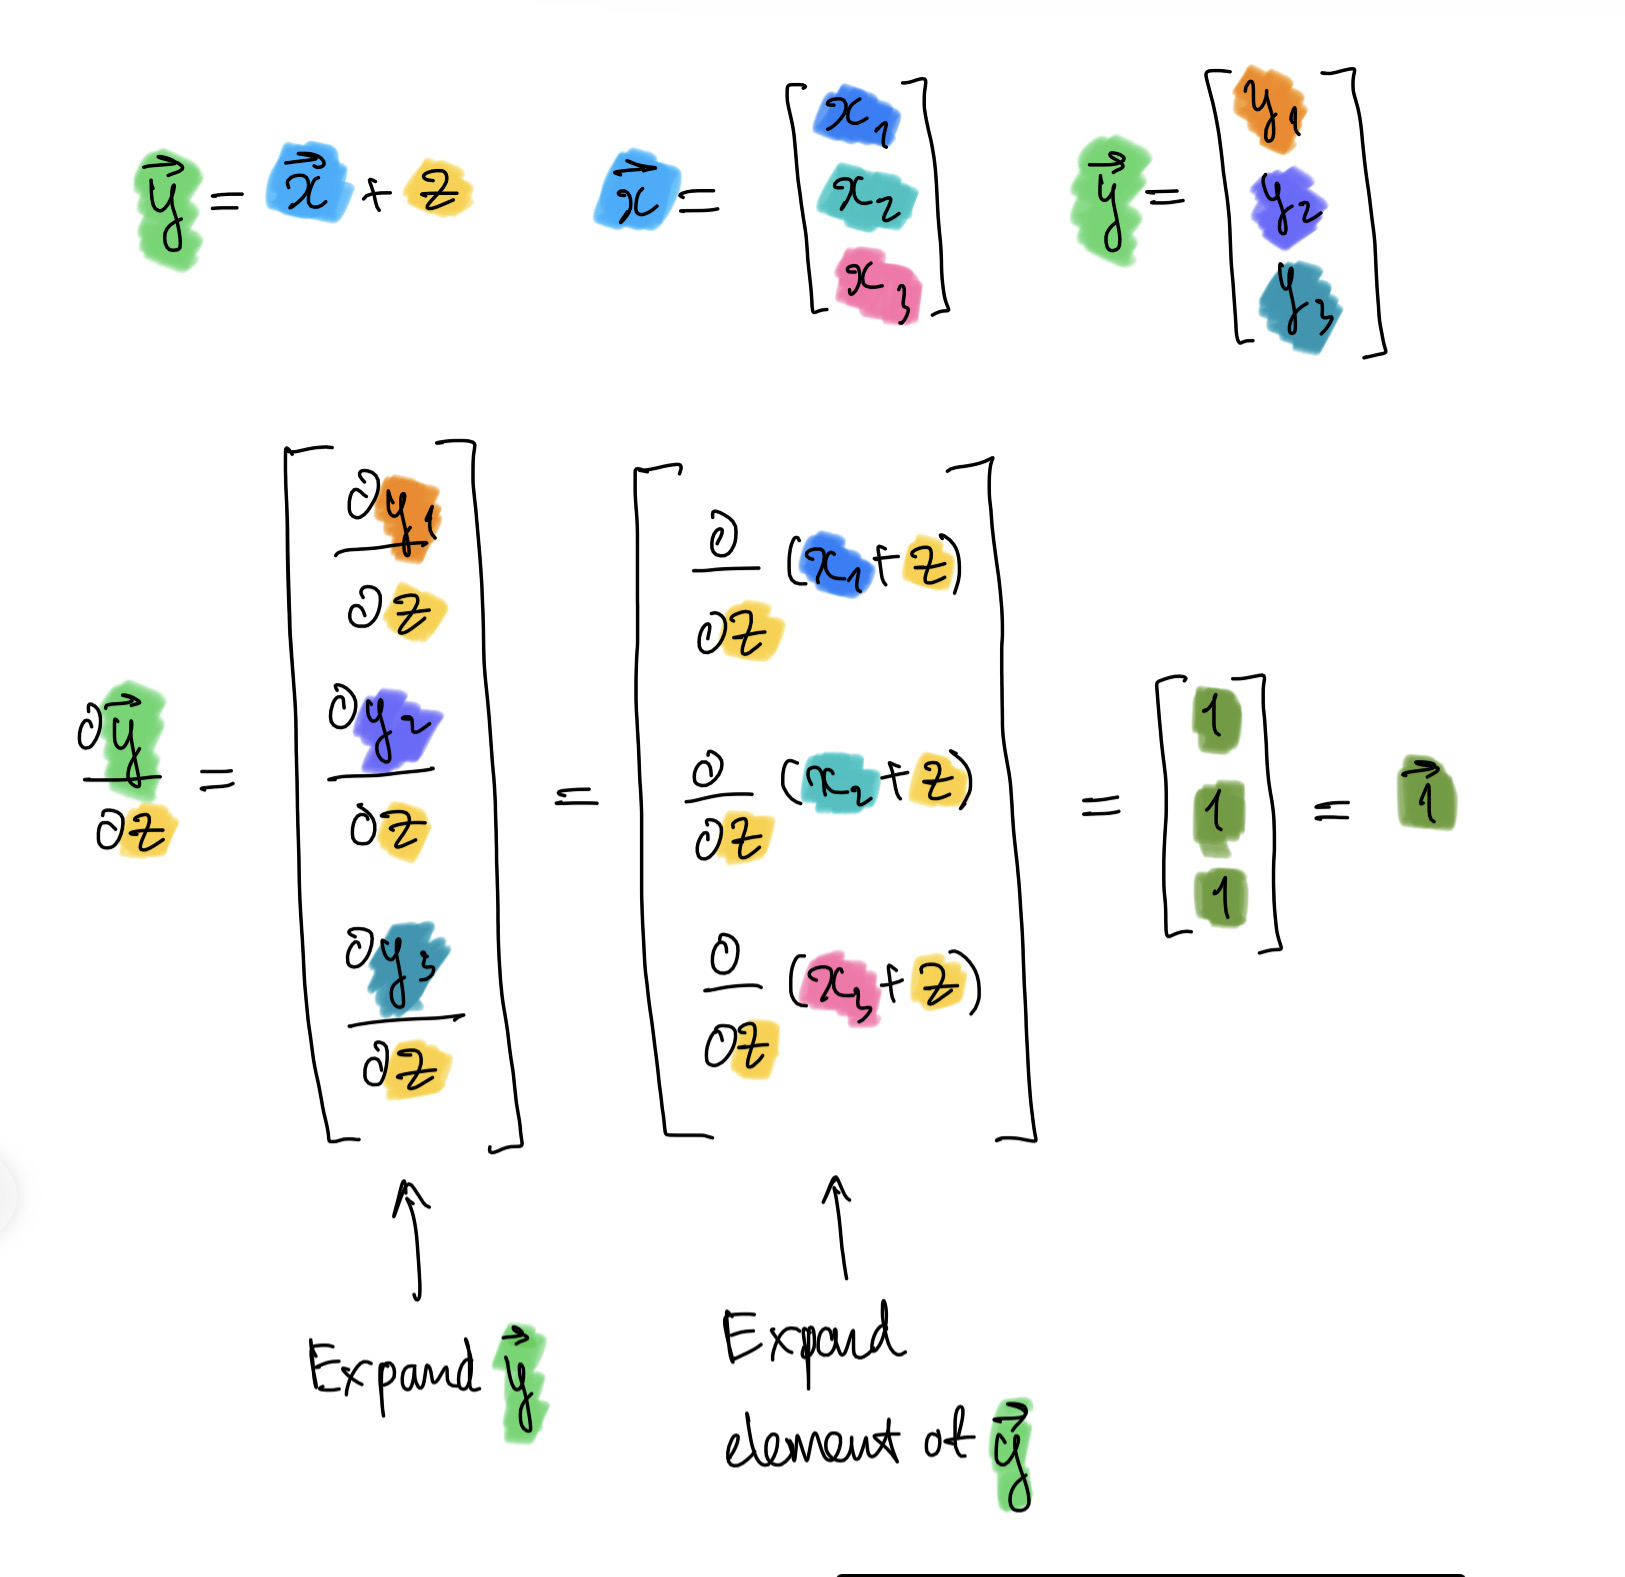 y⃗ = x⃗ + z   x⃗ = [x₁ x₂ x₃]   y⃗ = [y₁ y₂ y₃]
∂y⃗/∂z = [∂y₁/∂z ∂y₂/∂z ∂y₃/∂z] = [∂/∂z (x₁+z) ∂/∂z (x₂+z) ∂/∂z (x₃+z)] = [1 1 1] = 1⃗
Expand y⃗
Expand
element of y⃗